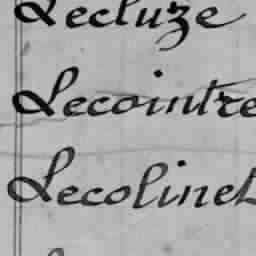 Lecluze
Lecointre
Lecolinet